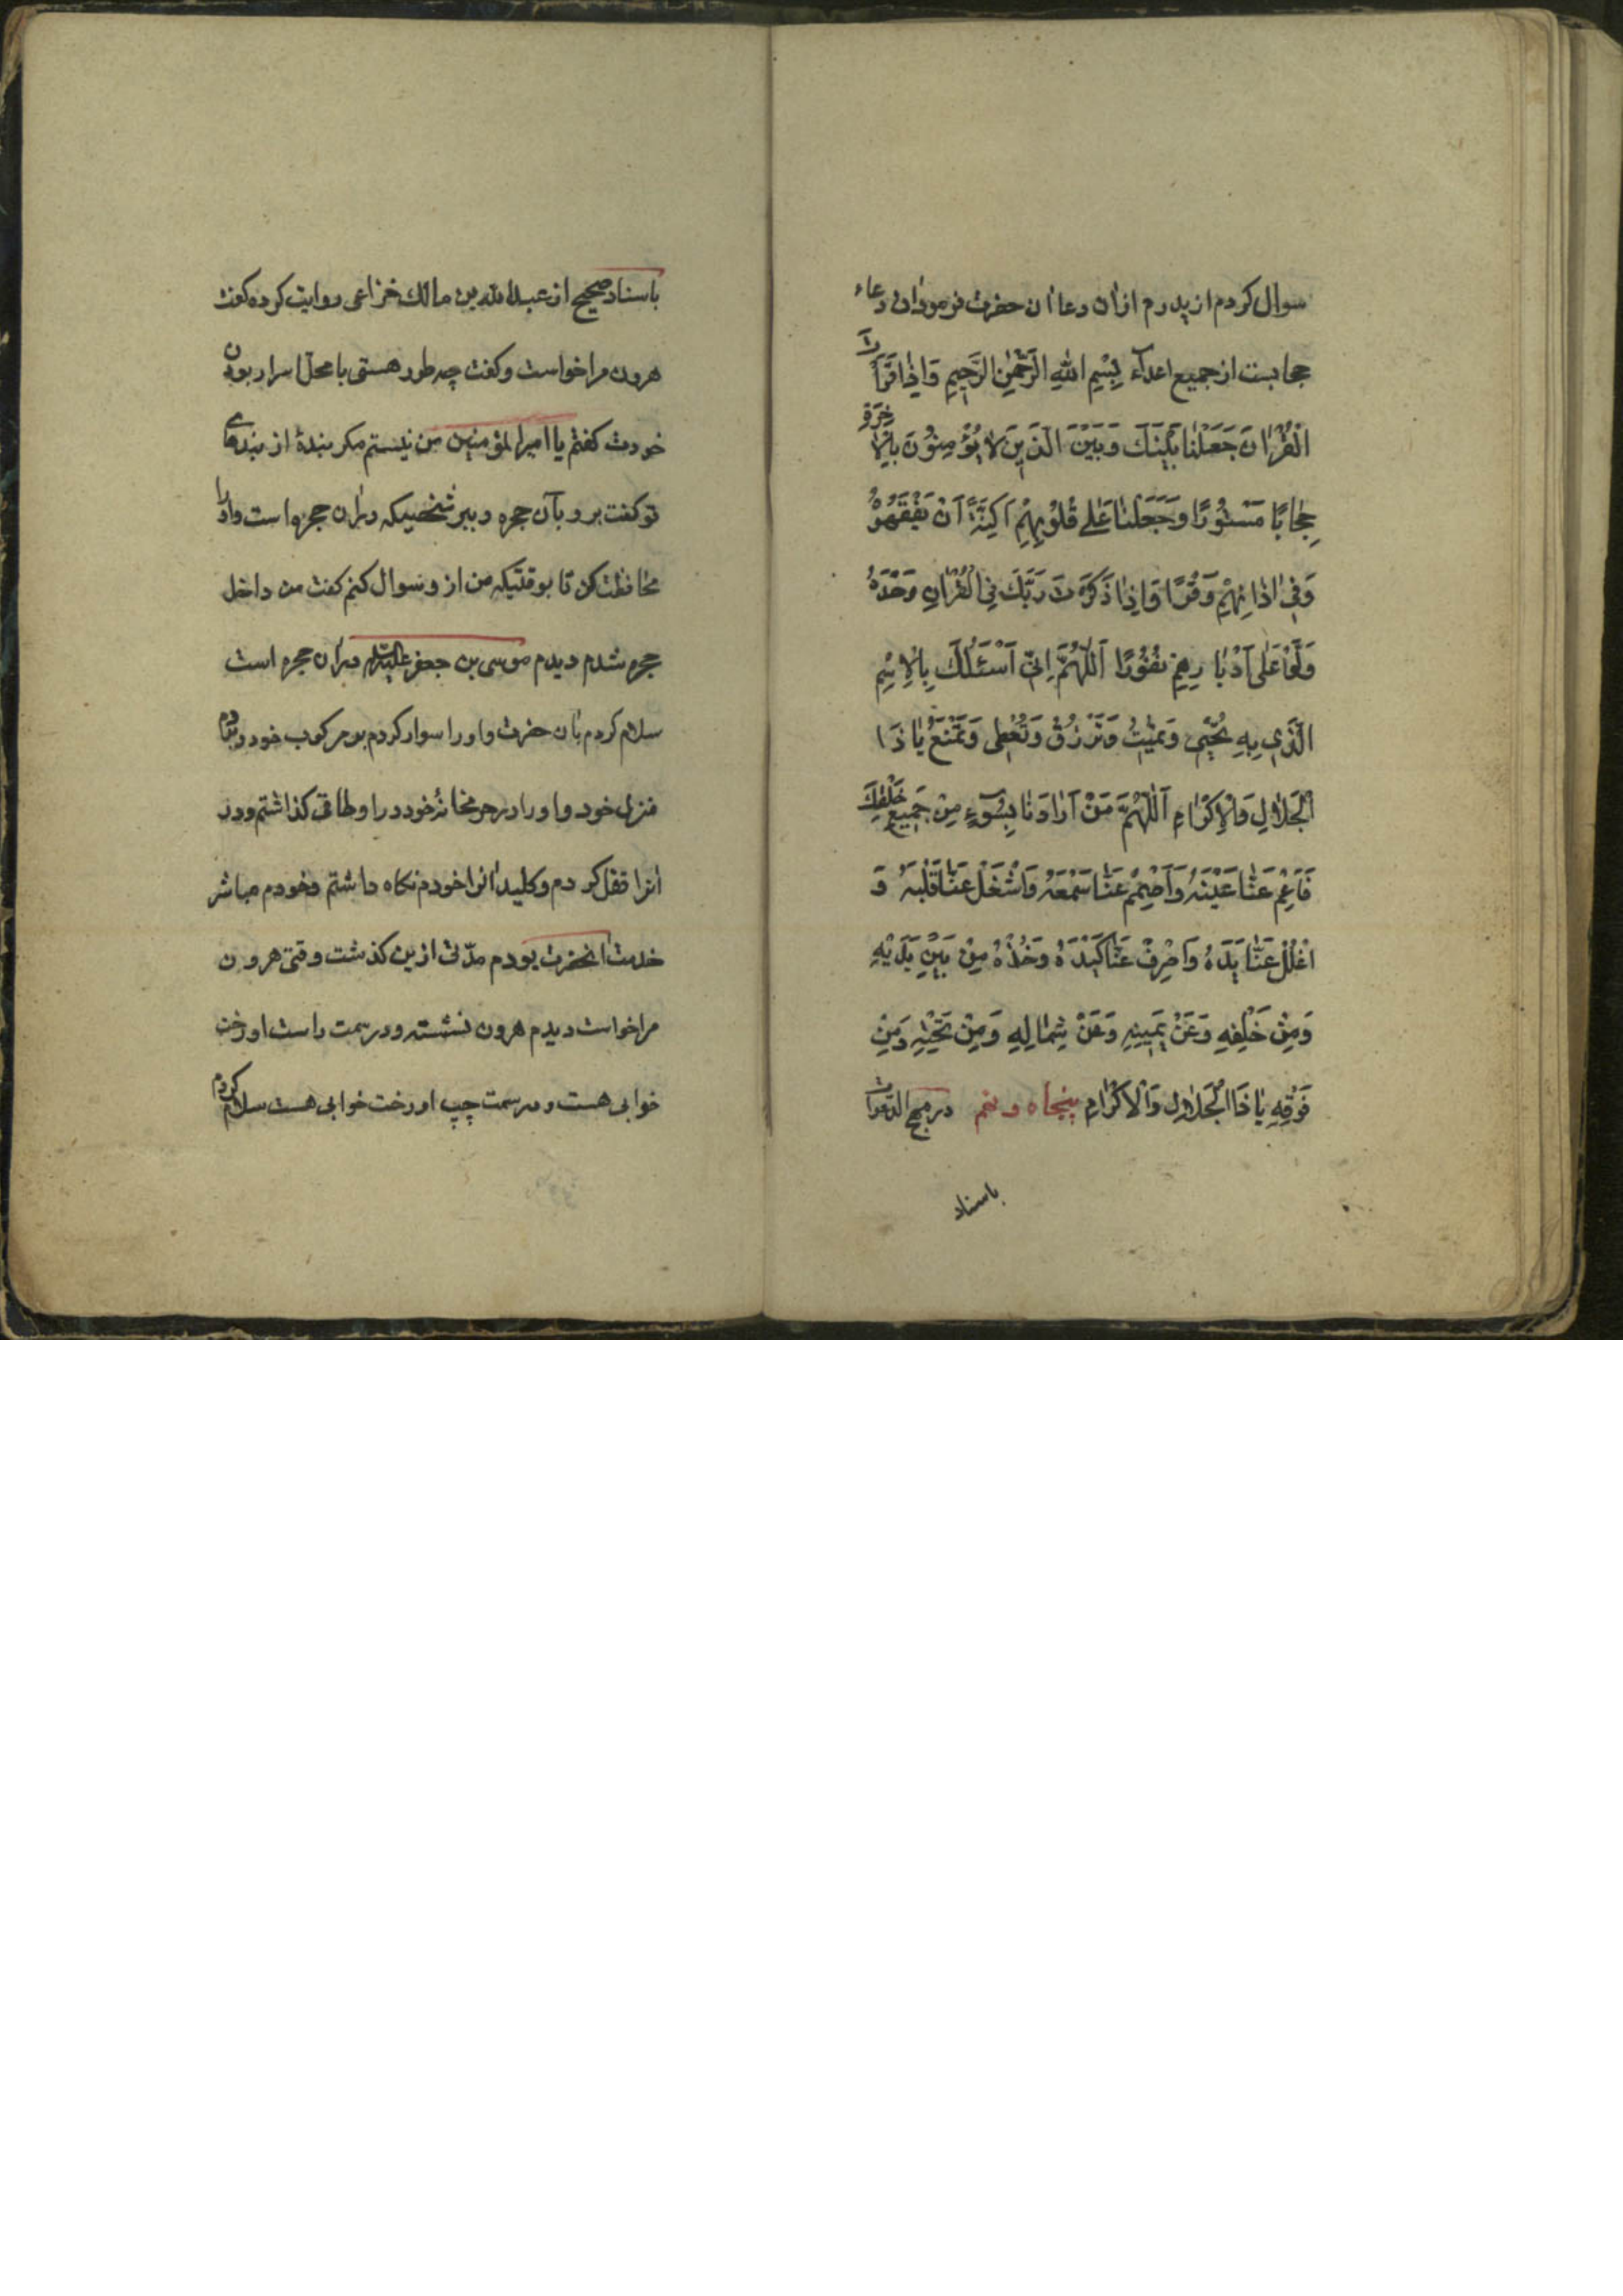 سوال کردم از پدرم ازان دعا ان حضرت فرمود ان دعاء
حجابست از جمیع اعدآء بِسْمِ اللهِ الرَّحْمٰنِ الرَّحِیمِ وَاِذٰا قَرَأْتَ
الْقُرْاٰنَ جَعَلْنٰا بَیْنَكَ وَبَیْنَ الَّذِینَ لاٰ یُؤْمِنُونَ بِالْاٰخِرَةِ
حِجٰابًا مَسْتُورًا وَجَعَلْنٰا عَلٰی قُلُوبِهِمْ اَکِنَّةً اَنْ یَفْقَهُوهُ
وَفِی اٰذٰانِهِمْ وَقْرًا وَاِذٰا ذَکَرْتَ رَبَّكَ فِی الْقُرْاٰنِ وَحْدَهُ
وَلَّوْا عَلٰی اَدْبٰارِهِمْ نُفُورًا اَللّٰهُمَّ اِنِّی اَسْئَلُكَ بِالْاِسْمِ
الَّذِی بِهِ تُحْیِی وَتُمِیتُ وَتَرْزُقُ وَتُعْطِی وَتَمْنَعُ یٰا ذَا
الْجَلاٰلِ وَالْاِکْرٰامِ اَللّٰهُمَّ مَنْ اَرٰادَنٰا بِسُوۤءٍ مِنْ جَمِیعِ خَلْقِكَ
فَاَعْمِ عَنّٰا عَیْنَهُ وَاَصْمِمْ عَنّٰا سَمْعَهُ وَاشْغَلْ عَنّٰا قَلْبَهُ وَ
اغْلُلْ عَنّٰا یَدَهُ وَاصْرِفْ عَنّٰا کَیْدَهُ وَخُذْهُ مِنْ بَیْنِ یَدَیْهِ
وَمِنْ خَلْفِهِ وَعَنْ یَمِینِهِ وَعَنْ شِمٰالِهِ وَمِنْ تَحْتِهِ وَمِنْ
فَوْقِهِ یٰا ذَا الْجَلاٰلِ وَالْاِکْرٰامِ پنجاه و نهم در مهج الدعوات
باسناد
باسناد صحیح از عبدالله بن مالك خزاعی روایت کرده کفت
هرون مرا خواست و کفت چه طور هستی با محل اسرار بودن
خودت کفتم یا امیرالمؤمنین من نیستم مکر بندۀ از بندهای
تو کفت برو بآن حجره و ببر شخصیکه دران حجره است و او را
محافظت کن تا بوقتیکه من از و سوال کنم کفت من داخل
حجره شدم دیدم موسی بن جعفر علیه السلام دران حجره است
سلام کردم بان حضرت و او را سوار کردم بر مرکوب خود و بردم
منزل خود و او را در حرمخانۀ خود در اوطاقی کذاشتم و در
انرا قفل کردم و کلید انرا خودم نکاه داشتم و خودم مباشر
خدمت انحضرت بودم مدّتی ازین کذشت وقتی هرون
مرا خواست دیدم هرون نشسته و در سمت راست او رخت
خوابی هست و در سمت چپ او رخت خوابی هست سلام کردم